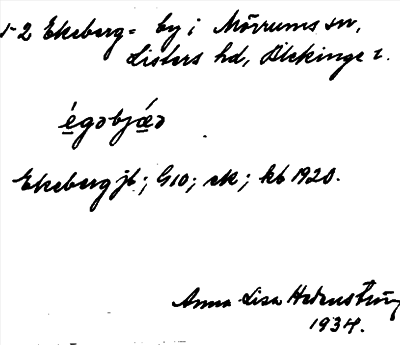 1-2 Ekeberg = by i Mörrums sn,
Listers hd, Blekinge l.
égəbjǽə
Ekeberg jb; G10; sk; kb 1920.
Anna Lisa
1934.